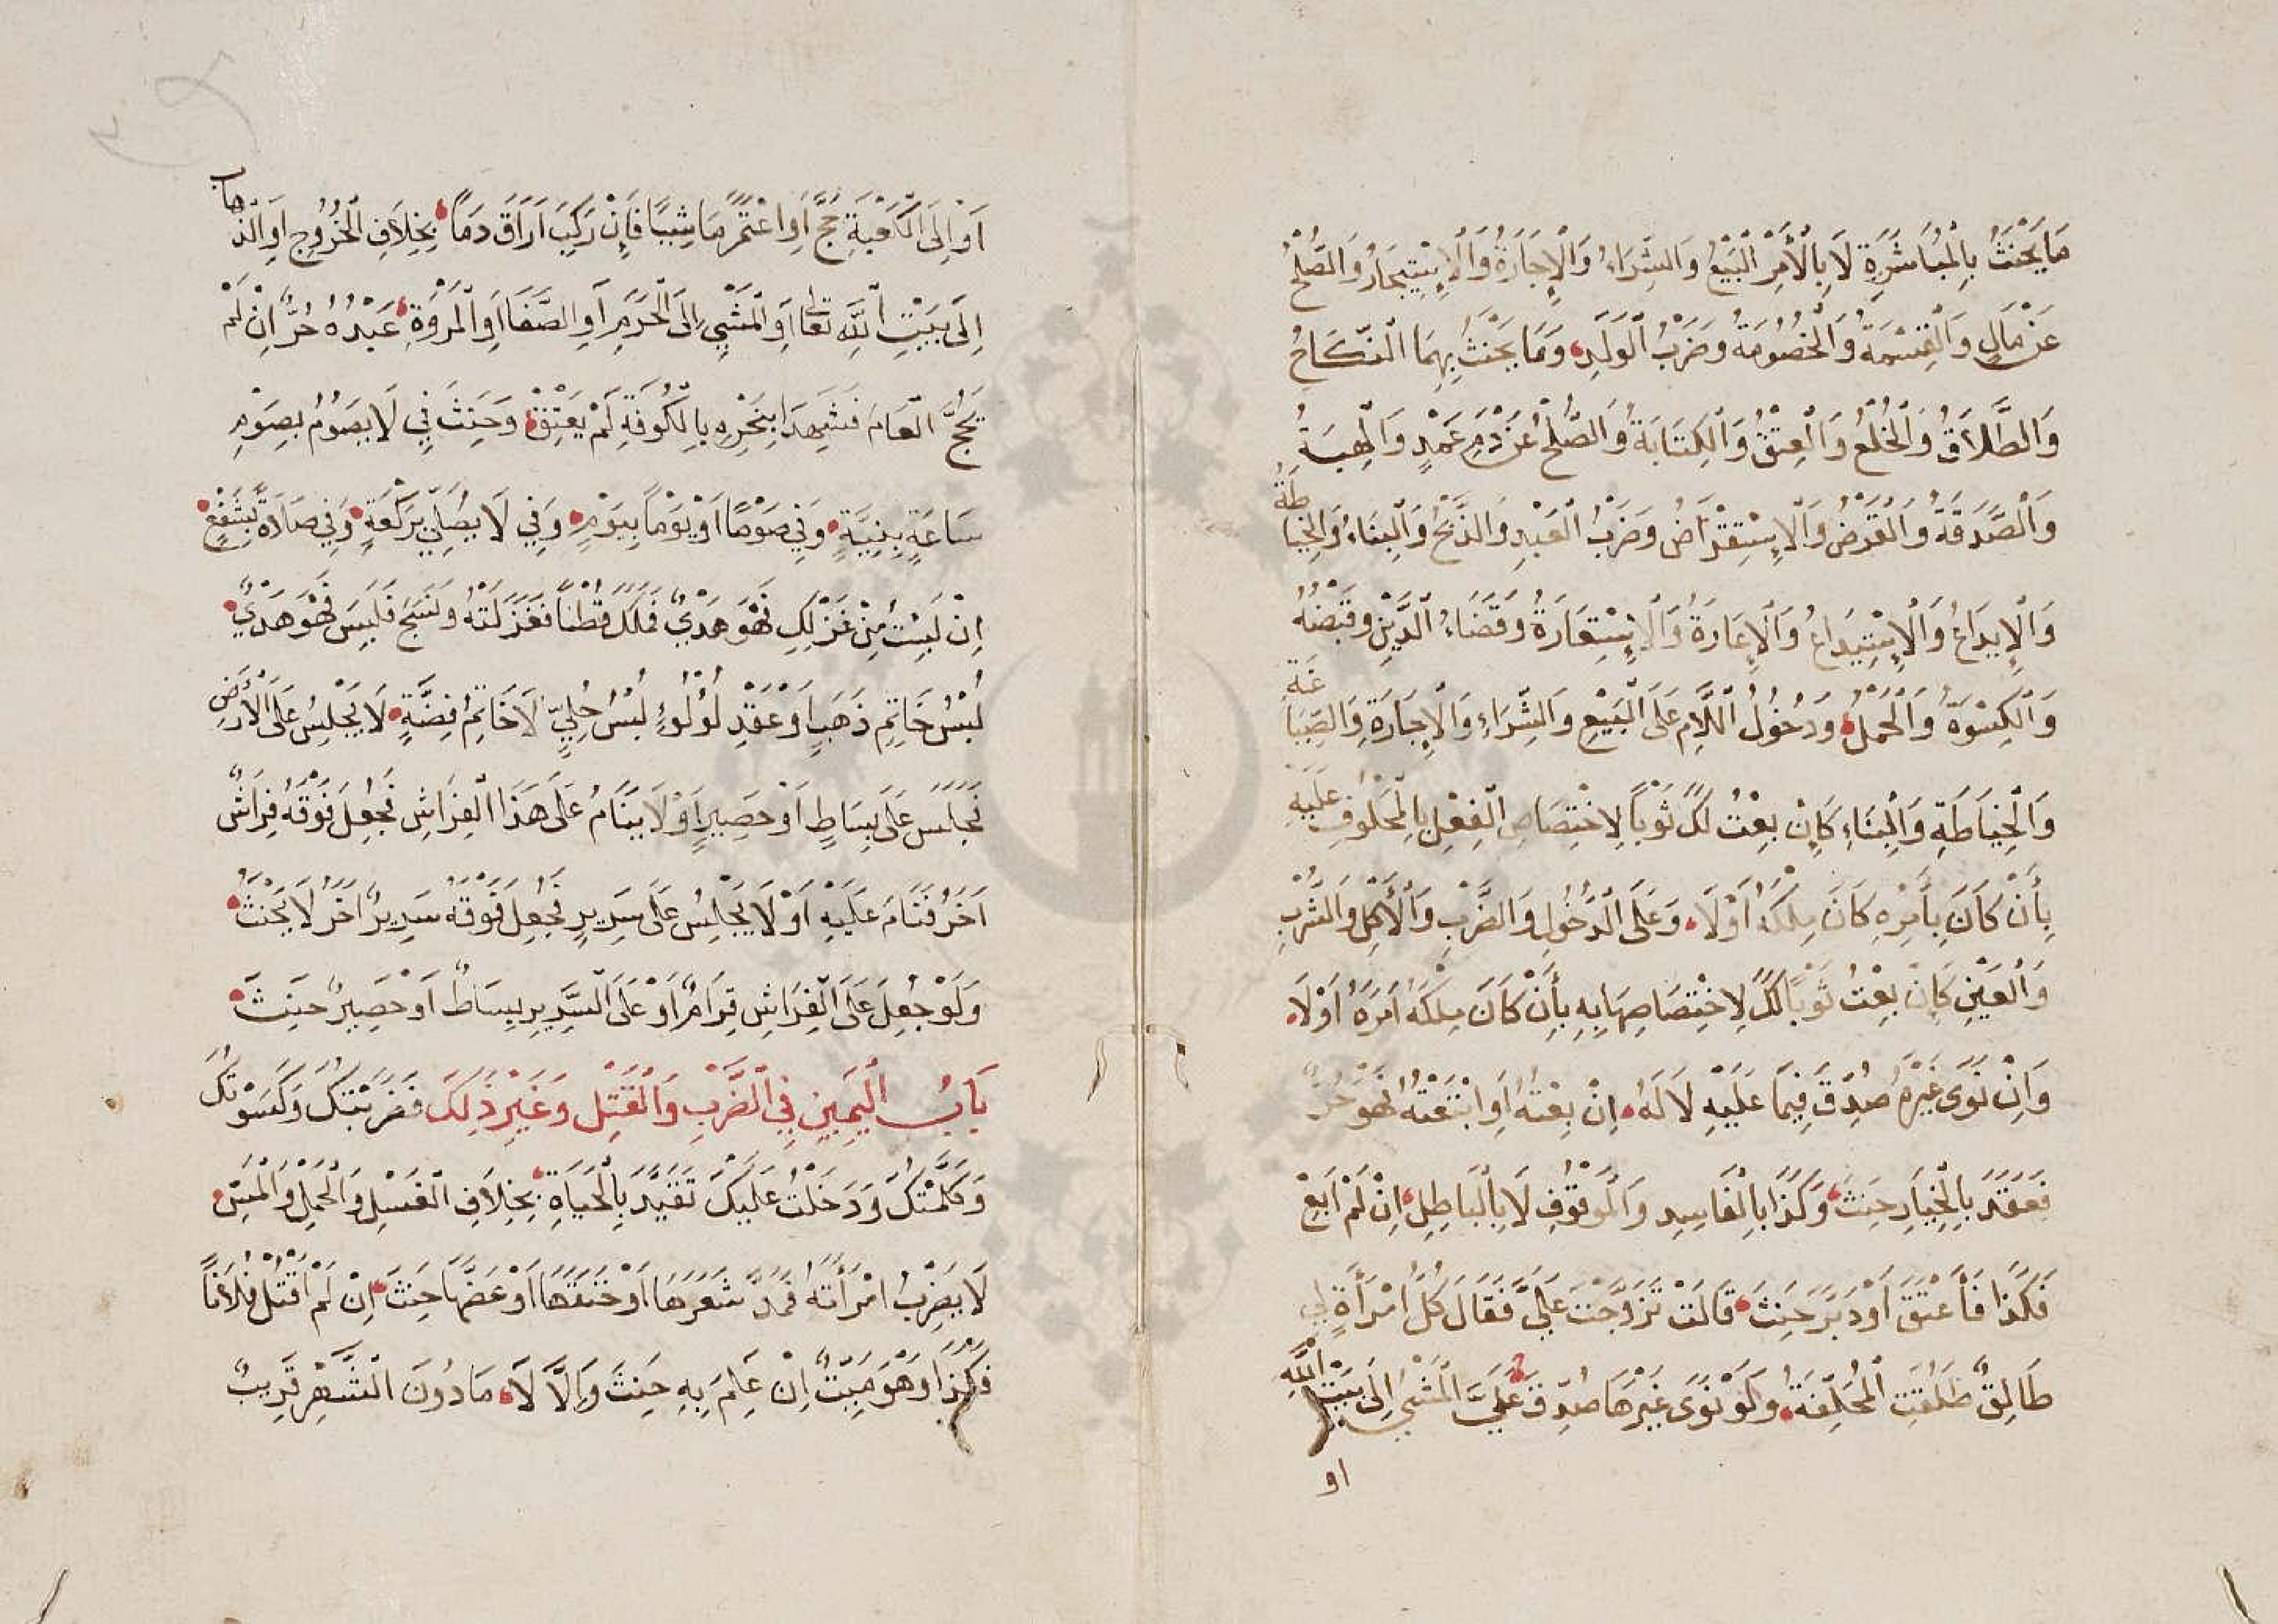 مَا يَحْنَثُ بِالْمُبَاشَرَةِ لَا بِالْأَمْرِ الْبَيْعُ وَالشِّرَاءُ وَالْإِجَارَةُ وَالْإِسْتِيجَارُ وَالصُّلْحُ
عَنْ مَالٍ وَالْقِسْمَةُ وَالْخُصُومَةُ وَضَرْبُ الْوَلَدِ وَمَا يَحْنَثُ بِهِمَا النِّكَاحُ
وَالطَّلَاقُ وَالْخُلْعُ وَالْعِتْقُ وَالْكِتَابَةُ وَالصُّلْحُ عَنْ دَمِ عَمْدٍ وَالْهِبَةُ
وَالصَّدَقَةُ وَالْقَرْضُ وَالْإِسْتِقْرَاضُ وَضَرْبُ الْعَبْدِ وَالذَّبْحُ وَالْبِنَاءُ وَالْخِيَاطَةُ
وَالْإِيدَاعُ وَالْإِسْتِيدَاعُ وَالْإِعَارَةُ وَالْإِسْتِعَارَةُ وَقَضَاءُ الدَّيْنِ وَقَبْضُهُ
وَالْكِسْوَةُ وَالْحَمْلُ وَدُخُولُ اللَّامِ عَلَى الْبَيْعِ وَالشِّرَاءِ وَالْإِجَارَةِ وَالصِّبَاغَةِ
وَالْخِيَاطَةِ وَالْبِنَاءِ كَإِنْ بِعْتُ لَكَ ثَوْبًا لِاخْتِصَاصِ الْفِعْلِ بِالْمَحْلُوفِ عَلَيْهِ
بِأَنْ كَانَ بِأَمْرِهِ كَانَ مِلْكَهُ اَوْ لَا وَعَلَى الدُّخُولِ وَالضَّرْبِ وَالْأَكْلِ وَالشُّرْبِ
وَالْعَيْنِ كَإِنْ بِعْتُ ثَوْبًا لَكَ لِاخْتِصَاصِهَا بِهِ بِأَنْ كَانَ مِلْكَهُ اَمَرَهُ اَوْ لَا
وَاِنْ نَوَى غَيْرَهُ صُدِّقَ فِيمَا عَلَيْهِ لَا لَهُ اِنْ بِعْتُهُ اَوِ ابْتَعْتُهُ فَهُوَ حُرٌّ
فَعَقَدَ بِالْخِيَارِ حَنِثَ وَكَذَا بِالْفَاسِدِ وَالْمَوْقُوفِ لَا بِالْبَاطِلِ اِنْ لَمْ اَبِعْ
فَكَذَا فَأَعْتَقَ اَوْ دَبَّرَ حَنِثَ قَالَتْ تَزَوَّجْتَ عَلَيَّ فَقَالَ كُلُّ امْرَأَةٍ لِي
طَالِقٌ طَلُقَتِ الْمُحَلِّفَةُ وَلَوْ نَوَى غَيْرَهَا صُدِّقَ عَلَيَّ الْمَشْيُ اِلَى بَيْتِ اللَّهِ
او
اَوْ اِلَى الْكَعْبَةِ حَجَّ اَوِ اعْتَمَرَ مَاشِيًا فَاِنْ رَكِبَ اَرَاقَ دَمًا بِخِلَافِ الْخُرُوجِ اَوِ الذَّهَابِ
اِلَى بَيْتِ اللَّهِ تَعَالَى اَوِ الْمَشْيِ اِلَى الْحَرَمِ اَوِ الصَّفَا اَوِ الْمَرْوَةِ عَبْدُهُ حُرٌّ اِنْ لَمْ
يَحُجَّ الْعَامَ فَشَهِدَا بِنَحْرِهِ بِالْكُوفَةِ لَمْ يَعْتِقْ وَحَنِثَ فِي لَا يَصُومُ بِصَوْمِ
سَاعَةٍ بِنِيَّةٍ وَفِي صَوْمًا اَوْ يَوْمًا بِيَوْمٍ وَفِي لَا يُصَلِّي بِرَكْعَةٍ وَفِي صَلَاةً بِشَفْعٍ
اِنْ لَبِسْتُ مِنْ غَزْلِكِ فَهُوَ هَدْيٌ فَمَلَكَ قُطْنًا فَغَزَلَتْهُ وَنُسِجَ فَلَبِسَ فَهُوَ هَدْيٌ
لُبْسُ خَاتِمِ ذَهَبٍ اَوْ عَقْدِ لُؤْلُوءٍ لُبْسُ حُلِيٍّ لَا خَاتِمُ فِضَّةٍ لَا يَجْلِسُ عَلَى الْأَرْضِ
فَجَلَسَ عَلَى بِسَاطٍ اَوْ حَصِيرٍ اَوْ لَا يَنَامُ عَلَى هَذَا الْفِرَاشِ فَجُعِلَ فَوْقَهُ فِرَاشٌ
اَخَرُ فَنَامَ عَلَيْهِ اَوْ لَا يَجْلِسُ عَلَى سَرِيرٍ فَجُعِلَ فَوْقَهُ سَرِيرٌ اَخَرُ لَا يَحْنَثُ
وَلَوْ جُعِلَ عَلَى الْفِرَاشِ قِرَامٌ اَوْ عَلَى السَّرِيرِ بِسَاطٌ اَوْ حَصِيرٌ حَنِثَ
بَابُ الْيَمِينِ فِي الضَّرْبِ وَالْقَتْلِ وَغَيْرِ ذَلِكَ ضَرَبْتُكَ وَكَسَوْتُكَ
وَكَلَّمْتُكَ وَدَخَلْتُ عَلَيْكَ تَقَيَّدَ بِالْحَيَاةِ بِخِلَافِ الْغَسْلِ وَالْحَمْلِ وَالْمَسِّ
لَا يَضْرِبُ امْرَأَتَهُ فَمَدَّ شَعَرَهَا اَوْ خَنَقَهَا اَوْ عَضَّهَا حَنِثَ اِنْ لَمْ اَقْتُلْ فُلَانًا
فَكَذَا وَهُوَ مَيِّتٌ اِنْ عَلِمَ بِهِ حَنِثَ وَاِلَّا لَا مَا دُونَ الشَّهْرِ قَرِيبٌ